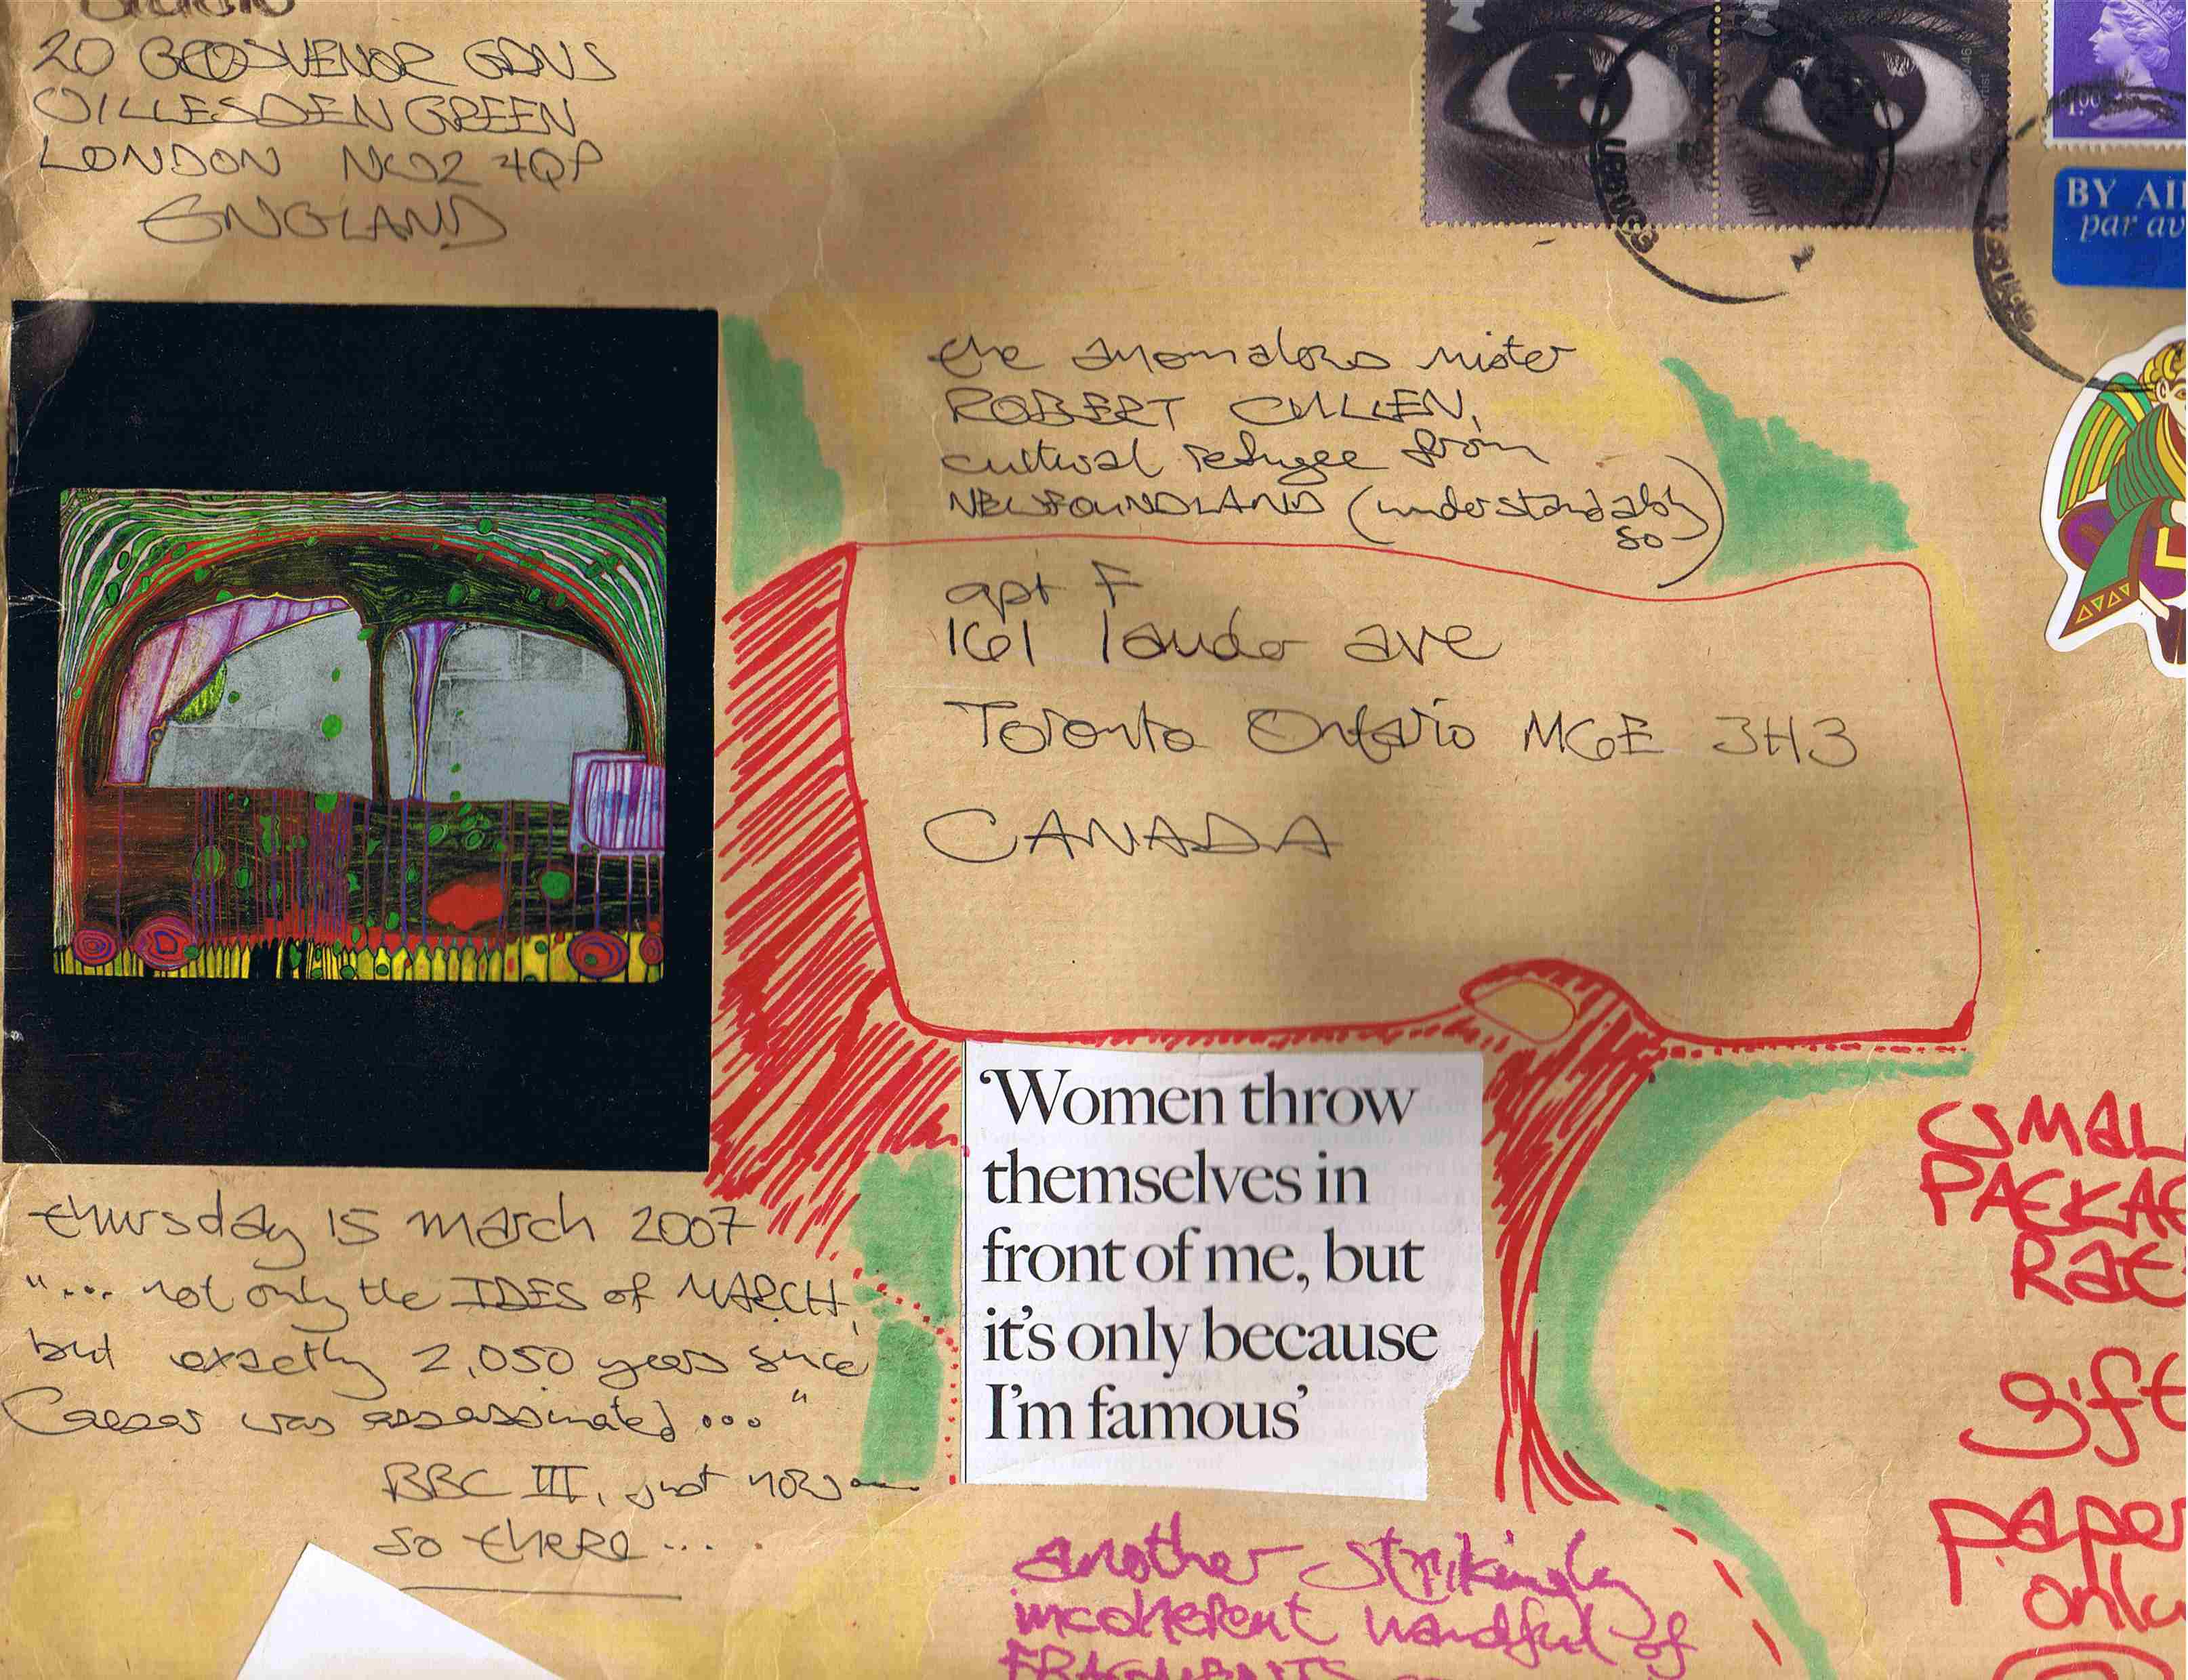 20 GROSVENOR GDNS
WILLESDEN GREEN
LONDON NW2 4QP
ENGLAND
1.00
BY AI
par av
the anomalous mister
ROBERT CULLEN,
cultural refugee from
NEWFOUNDLAND (understandably
so)
apt F
161 lauder ave
Toronto Ontario M6E 3H3
CANADA
'Women throw
themselves in
front of me, but
it's only because
I'm famous'
thursday 15 march 2007
"... not only the IDES of MARCH,
but exactly 2,050 years since
Caesar was assassinated..."
BBC III, just now
so there...
SMAL
PACKAG
RAT
gift
paper
only
another strikingly
incoherent handful of
FRAGMENTS